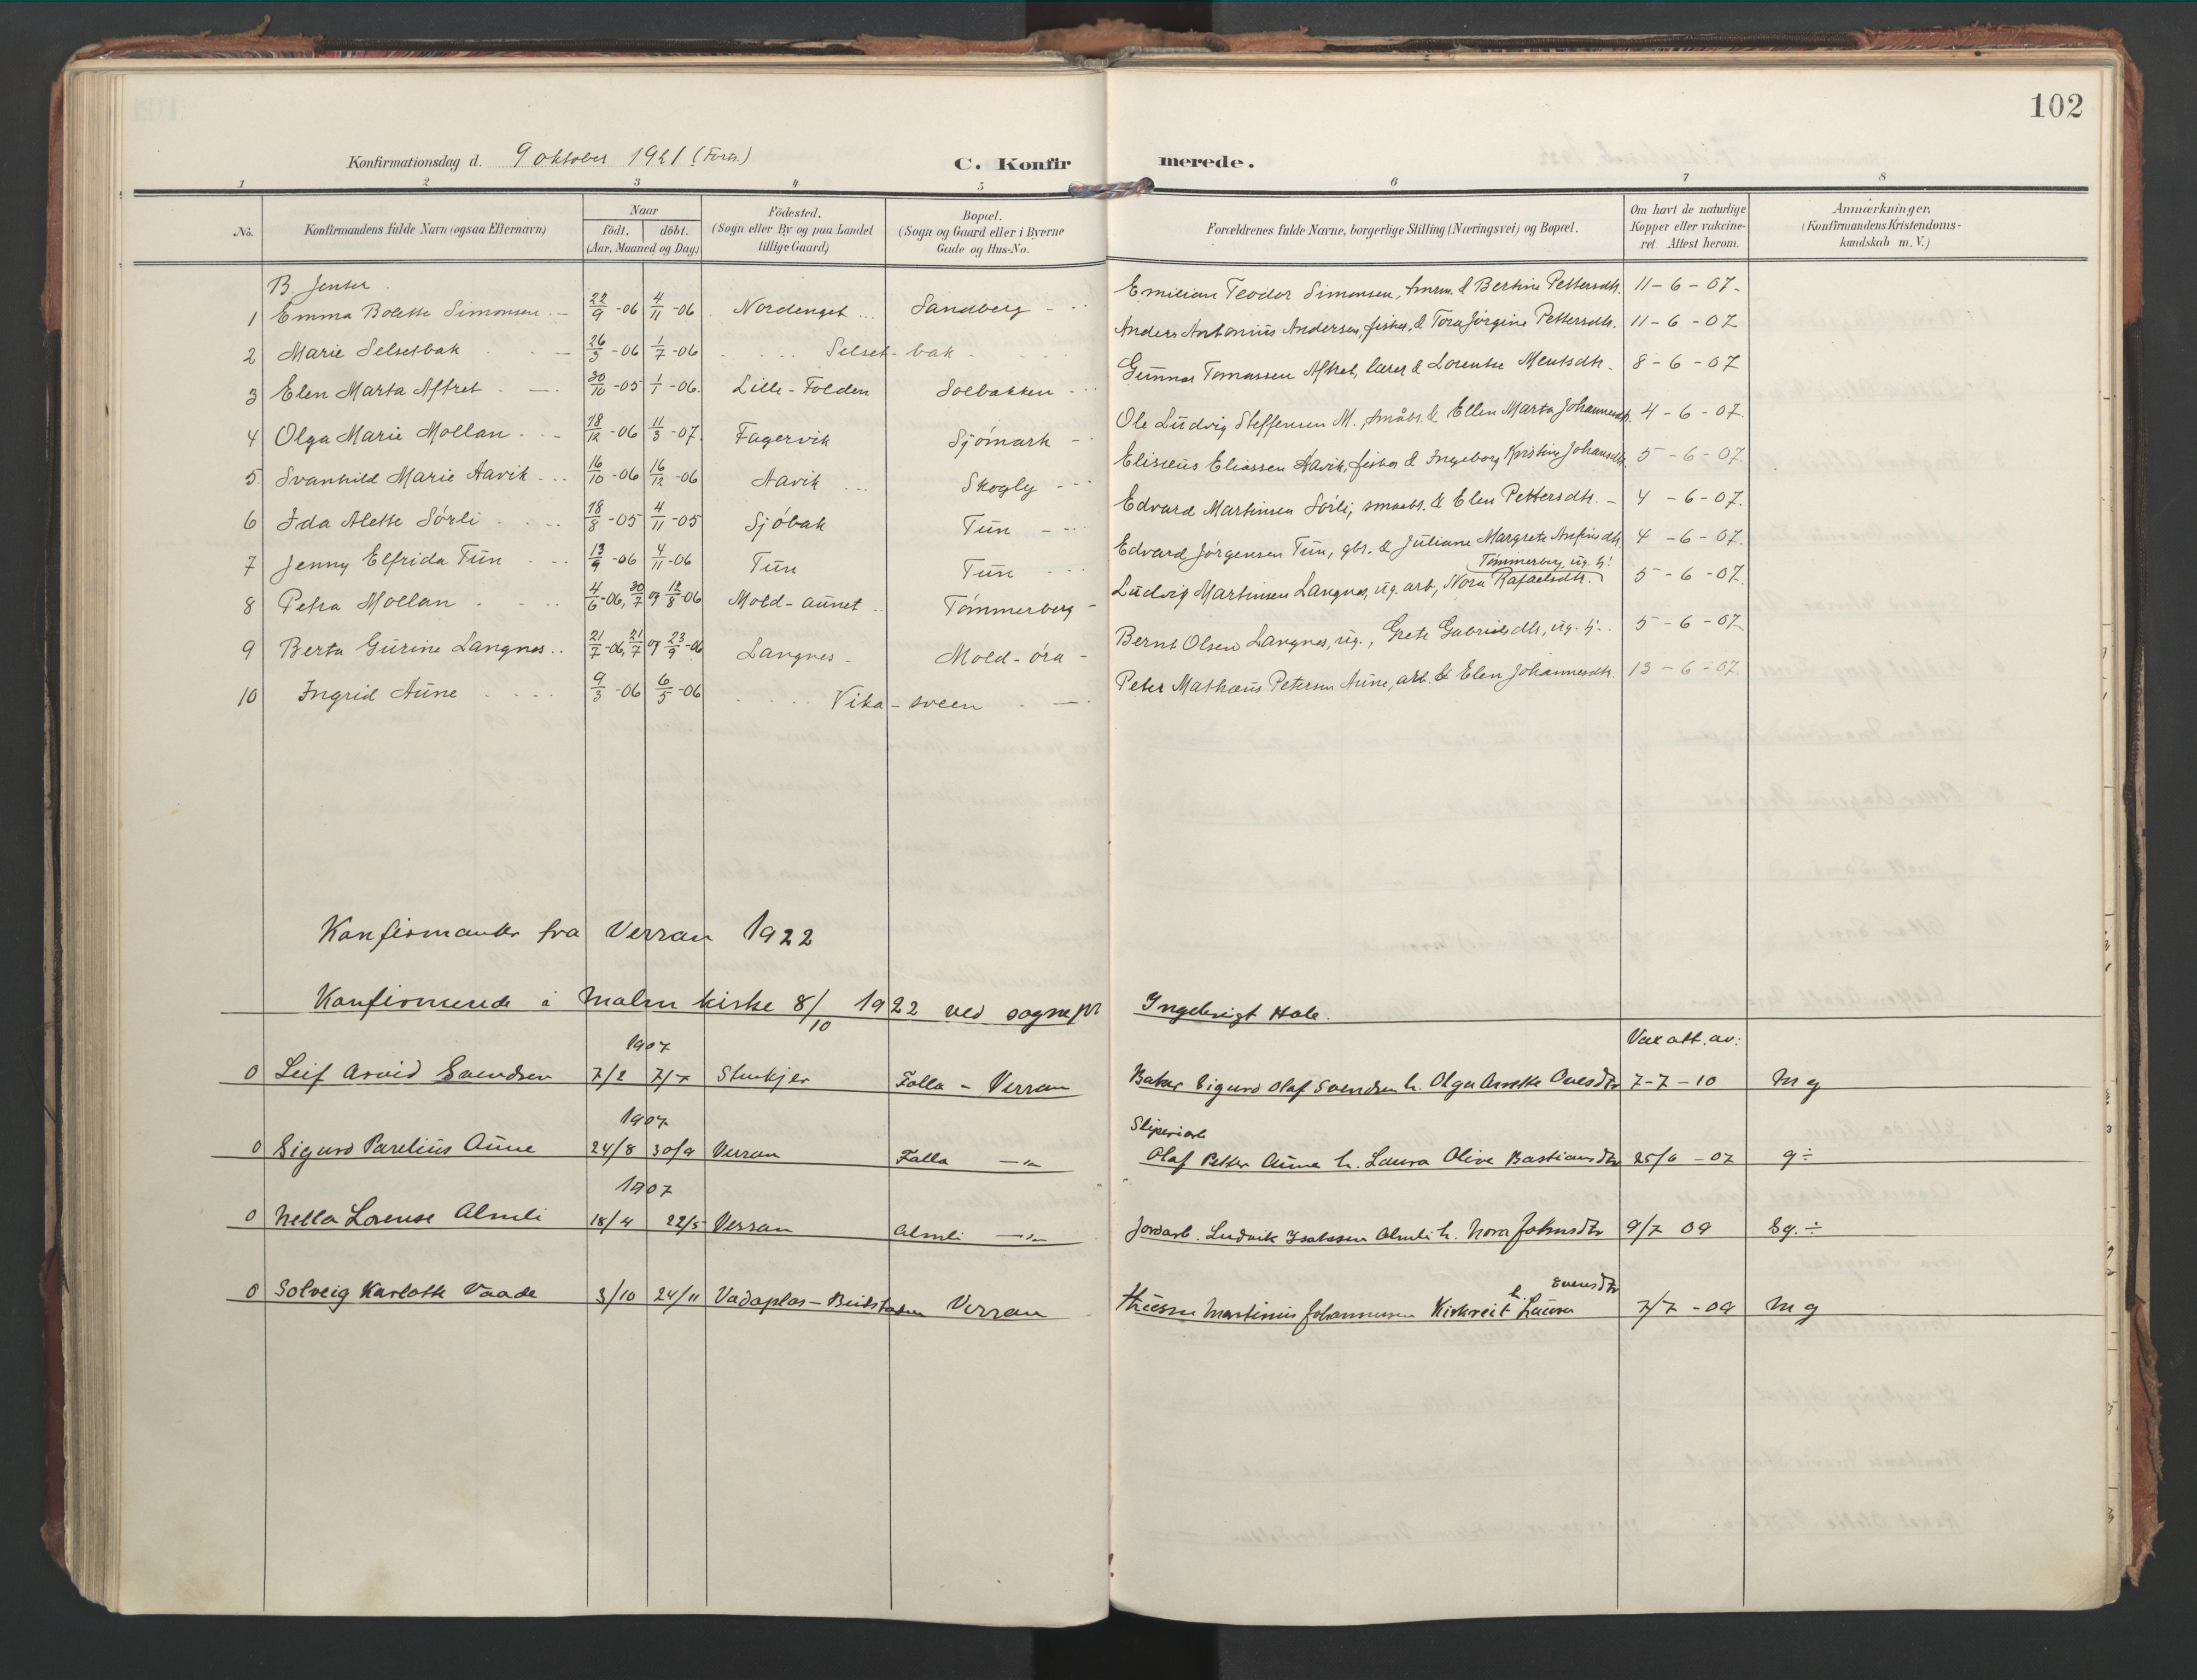 102
Konfirmationsdag d. 9 oktober 1921 (Forts.) C. Konfirmerede.
1 2 3 4 5 6 7 8
No. Konfirmandens fulde Navn (ogsaa Efternavn) Naar födt. döbt. (Aar, Maaned og Dag) Födested. (Sogn eller By og paa Landet tillige Gaard) Bopæl. (Sogn og Gaard eller i Byerne Gade og Hus-No. Forældrenes fulde Navne, borgerlige Stilling (Næringsvei) og Bopæl. Om havt de naturlige Kopper eller vakcineret. Attest herom. Anmærkninger. (Konfirmandens Kristendomskundskab m. V.)
B. Jenter.
1 Emma Bolette Simonsen 22/9-06 4/11-06 Nordenget Sandberg Emilian Teodor Simonsen, tmrm. & Bertine Pettersdtr. 11-6-07
2 Marie Selsetbak 26/3-06 1/7-06 Selset-bak Anders Antonius Andersen, fisker, & Tora Jörgine Pettersdtr. 11-6-07
3 Elen Marta Aftret 30/10-05 1/1-06. Lille-Folden Solbakken Gunnar Tomassen Aftret, lærer & Lorentse Mentsdtr. 8-6-07
4 Olga Marie Mollan 18/12-06 11/3-07. Fagervik Sjömark Ole Ludvig Steffensen M., småbr. & Ellen Marta Johannesdtr. 4-6-07.
5 Svanhild Marie Aavik 16/10-06 16/12-06 Aavik Skogly Elisæus Eliassen Aavik, fisker & Ingeborg Kristine Johansdtr. 5-6-07.
6 Ida Alette Sörli 18/8-05 4/11-05 Sjöbak Tun Edvard Martinsen Sörli, smaabr. & Elen Pettersdtr. 4-6-07.
7 Jenny Elfrida Tun 13/9-06 4/11-06 Tun Tun Edvard Jörgensen Tun, gbr. & Juliane Margrete Anfinsdtr. 4-6-07.
8 Petra Mollan 4/6-06, 30/7 og 12/8-06 Mold-aunet Tömmerberg Ludvig Martinsen Langnes, ug. arb, Nora Rafaelsdtr. Tömmerberg, ug. tj. 5-6-07.
9 Berta Gurine Langnes 21/7-06, 21/7 og 23/9-06 Langnes Mold-öra Bernt Olsen Langnes, ug., Grete Gabrielsdtr, ug. tj. 5-6-07
10 Ingrid Aune 9/3-06 6/5-06 Vika-sveen Peter Mathæus Petersen Aune, arb. & Elen Johannesdtr. 13-6-07.
Konfirmanter fra Verran 1922
Konfirmerede i Malm kirke 8/10 1922 ved sognepr Ingebrigt Hole.
Vax att. av:
1907
0 Leif Arvid Svendsen 7/2 7/7 Stenkjer Folla - Verran Baker Sigurd Olaf Svendsen h. Olga Anette Ovesdtr 7-7-10 Mg
1907
0 Sigurd Parelius Aune 24/8 30/9 Verran Folla -"- Sliperiarb Olaf Petter Aune h. Laura Olive Bastiansdtr 25/6-07 g÷
1907
0 Nella Lorense Almli 18/4 22/5 Verran Almli -"- Jordarb. Ludvik Isaksen Almli h. Nora Johnsdtr 9/7 09 Sg.÷
0 Solveig Karlotte Vaade 3/10 24/11 Vadaplas-Beitstaden Verran Martinus Johannesen Kirkreit h. Laura Svensdtr 7/7-09 Mg